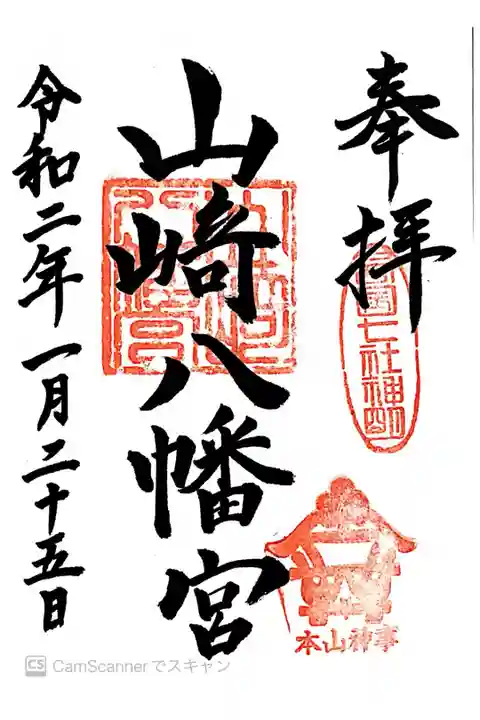 奉拝
七社神明
本山神事
山﨑八幡宮
令和二年一月二十五日
CS CamScannerでスキャン